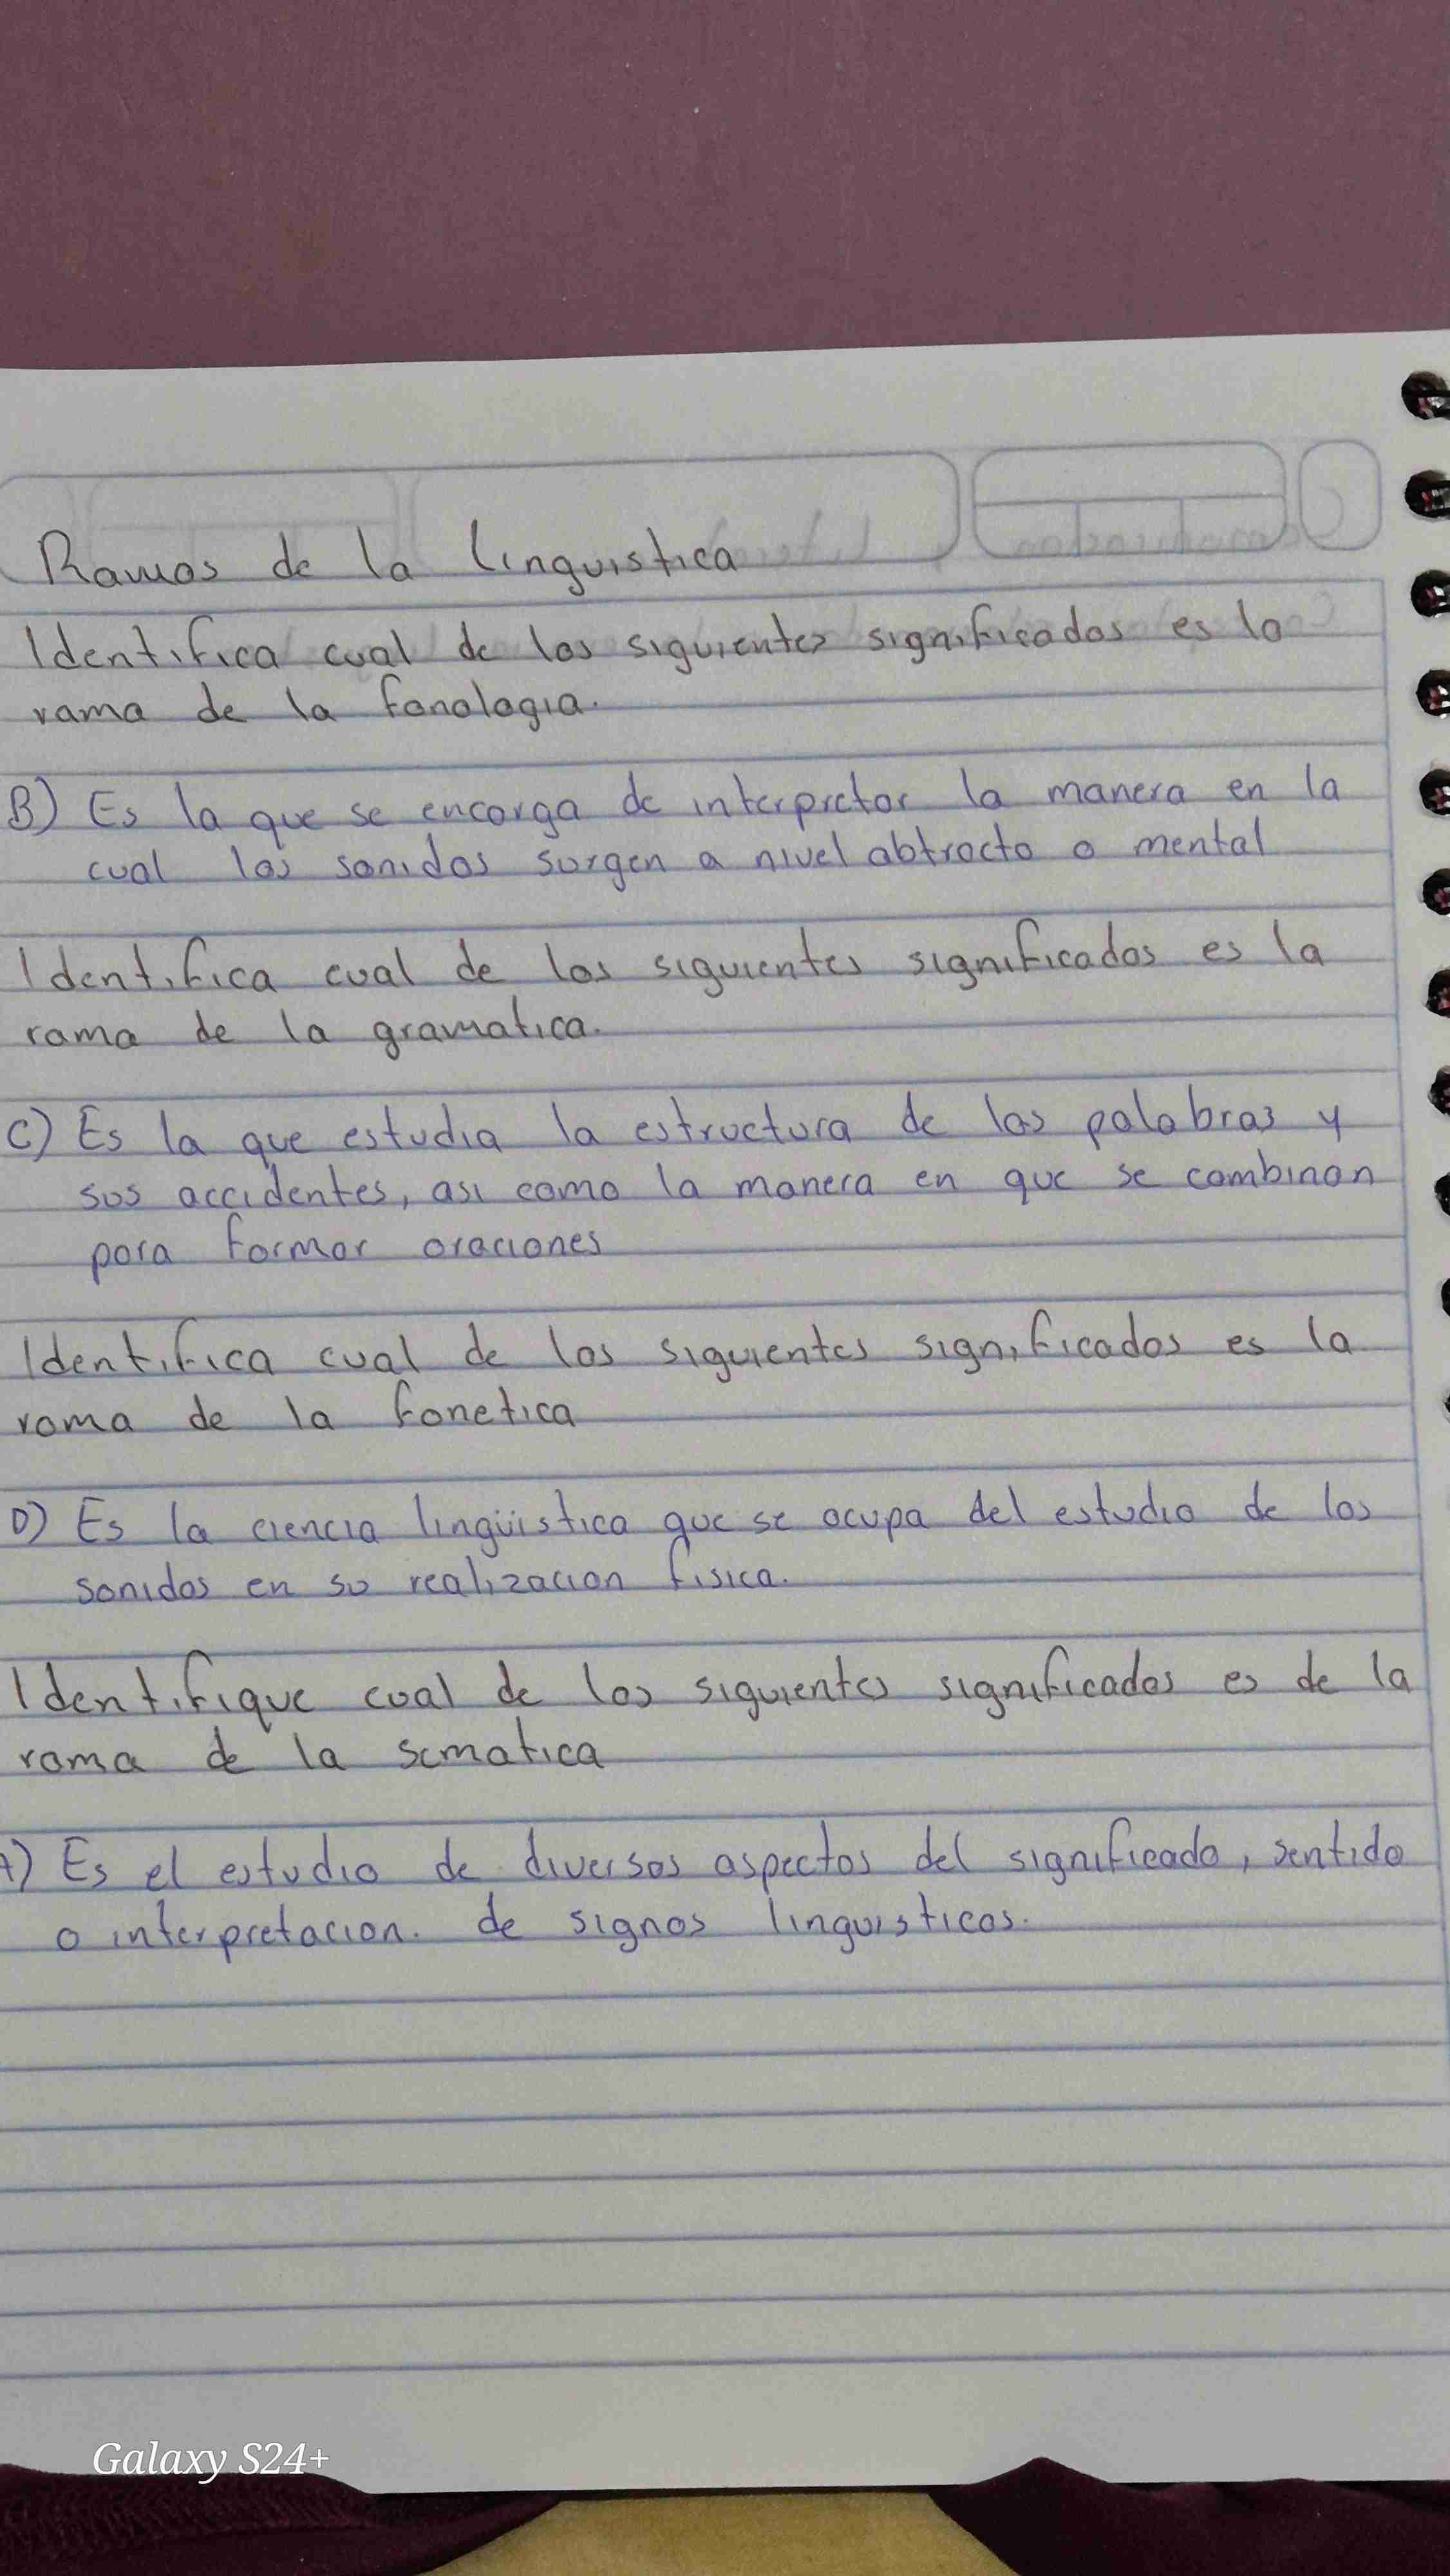 Ramas de la linguistica
Identifica cual de los siguientes significados es la
rama de la fonologia.
B) Es la que se encarga de interpretar la manera en la
cual los sonidos surgen a nivel abtracto o mental
Identifica cual de los siguientes significados es la
rama de la gramatica.
C) Es la que estudia la estructura de las palabras y
sus accidentes, asi como la manera en que se combinan
para formar oraciones
Identifica cual de los siguientes significados es la
rama de la fonetica
D) Es la ciencia lingüistica que se ocupa del estudio de los
sonidos en su realizacion fisica.
Identifique cual de los siguientes significados es de la
rama de la smatica
A) Es el estudio de diversos aspectos del significado, sentido
o interpretacion. de signos linguisticos.
Galaxy S24+